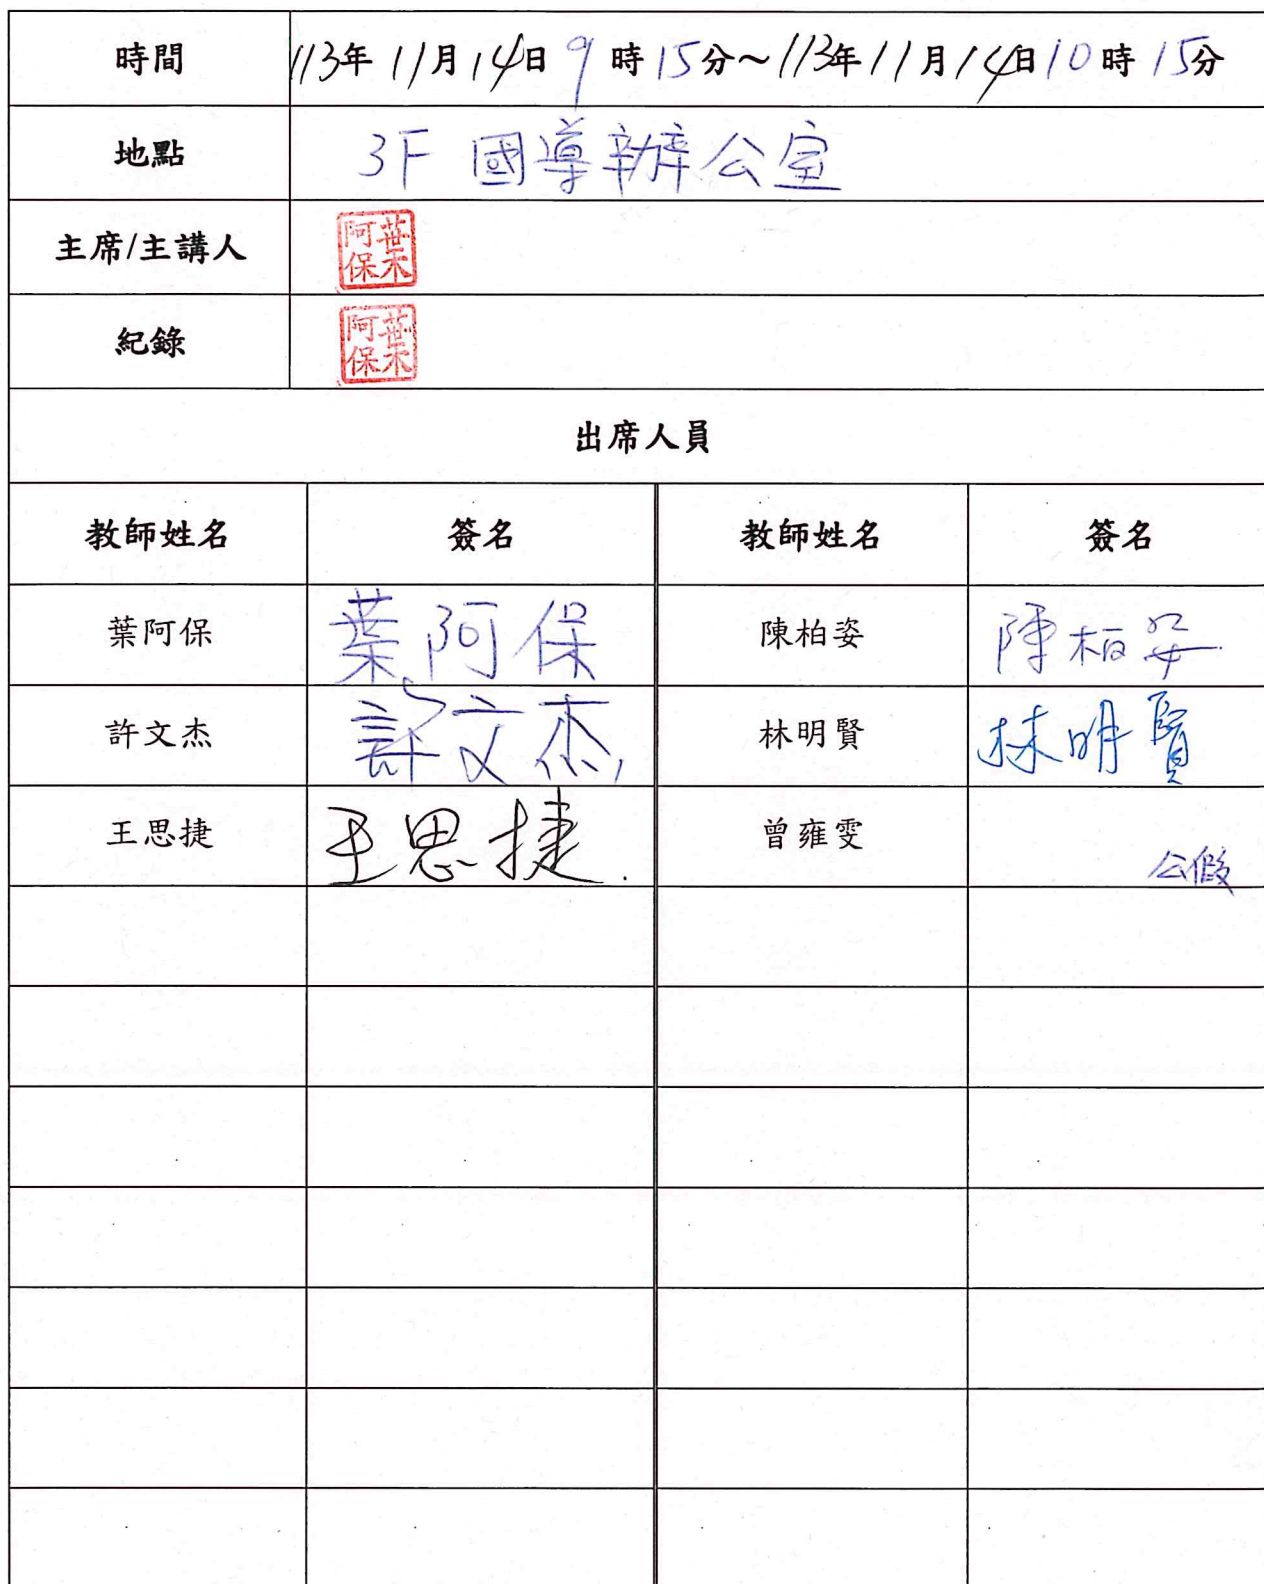 時間 113年11月14日9時15分~113年11月14日10時15分
地點 3F 國導辦公室
主席/主講人 葉阿保
紀錄 葉阿保
出席人員
教師姓名 簽名 教師姓名 簽名
葉阿保 葉阿保 陳柏姿 陳柏姿
許文杰 許文杰 林明賢 林明賢
王思捷 王思捷 曾雍雯 公假